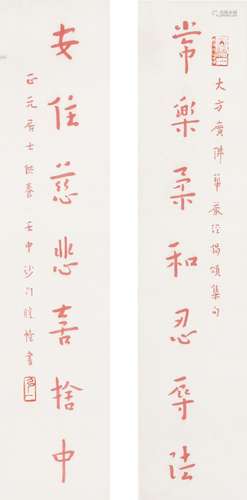 大方廣佛華嚴經偈頌集句
常樂柔和忍辱法
安住慈悲喜捨中
正元居士供養 壬申沙門曇昉書